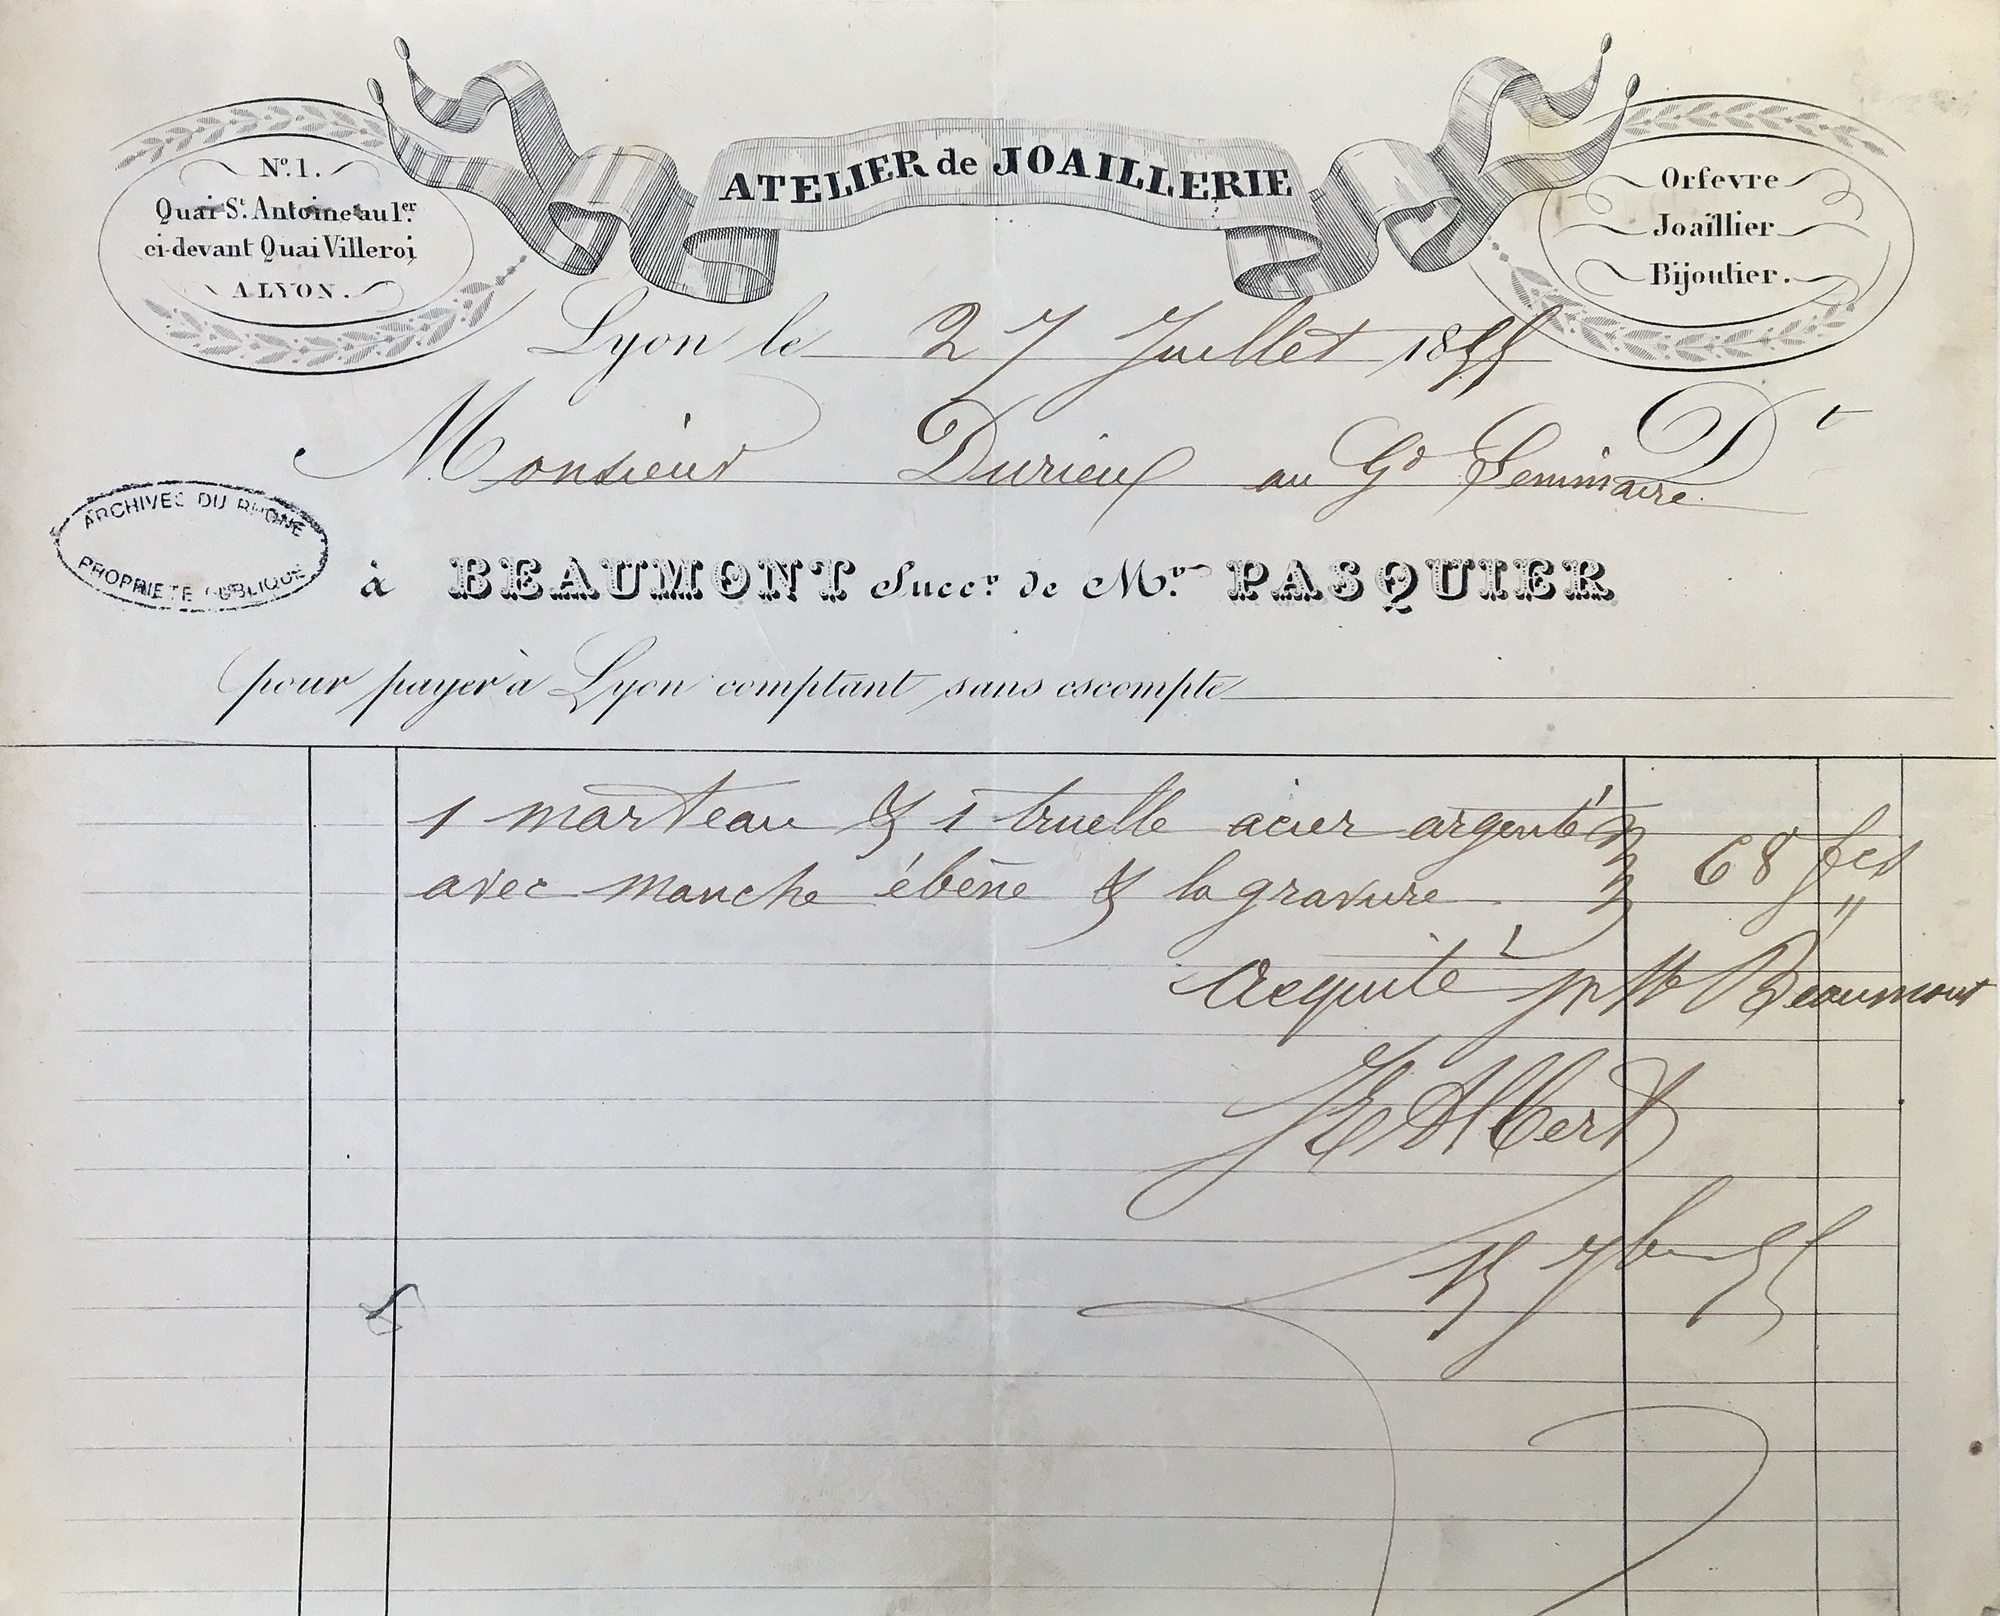 ATELIER de JOAILLERIE
No. 1.
Quai St. Antoine au 1er.
ci-devant Quai Villeroi
A LYON.
Orfevre
Joaillier
Bijoutier.
Lyon le 27 Juillet 1855
Monsieur Durieux au Gd Seminaire Dt
ARCHIVES DU RHONE
PROPRIETE PUBLIQUE
à BEAUMONT Succr. de Mr. PASQUIER
pour payer à Lyon comptant sans escompte
1 marteau & 1 truelle acier argenté
avec manche ébène & la gravure. 68 fcs "
Acquité pr Beaumont
Albert
15 7bre 55